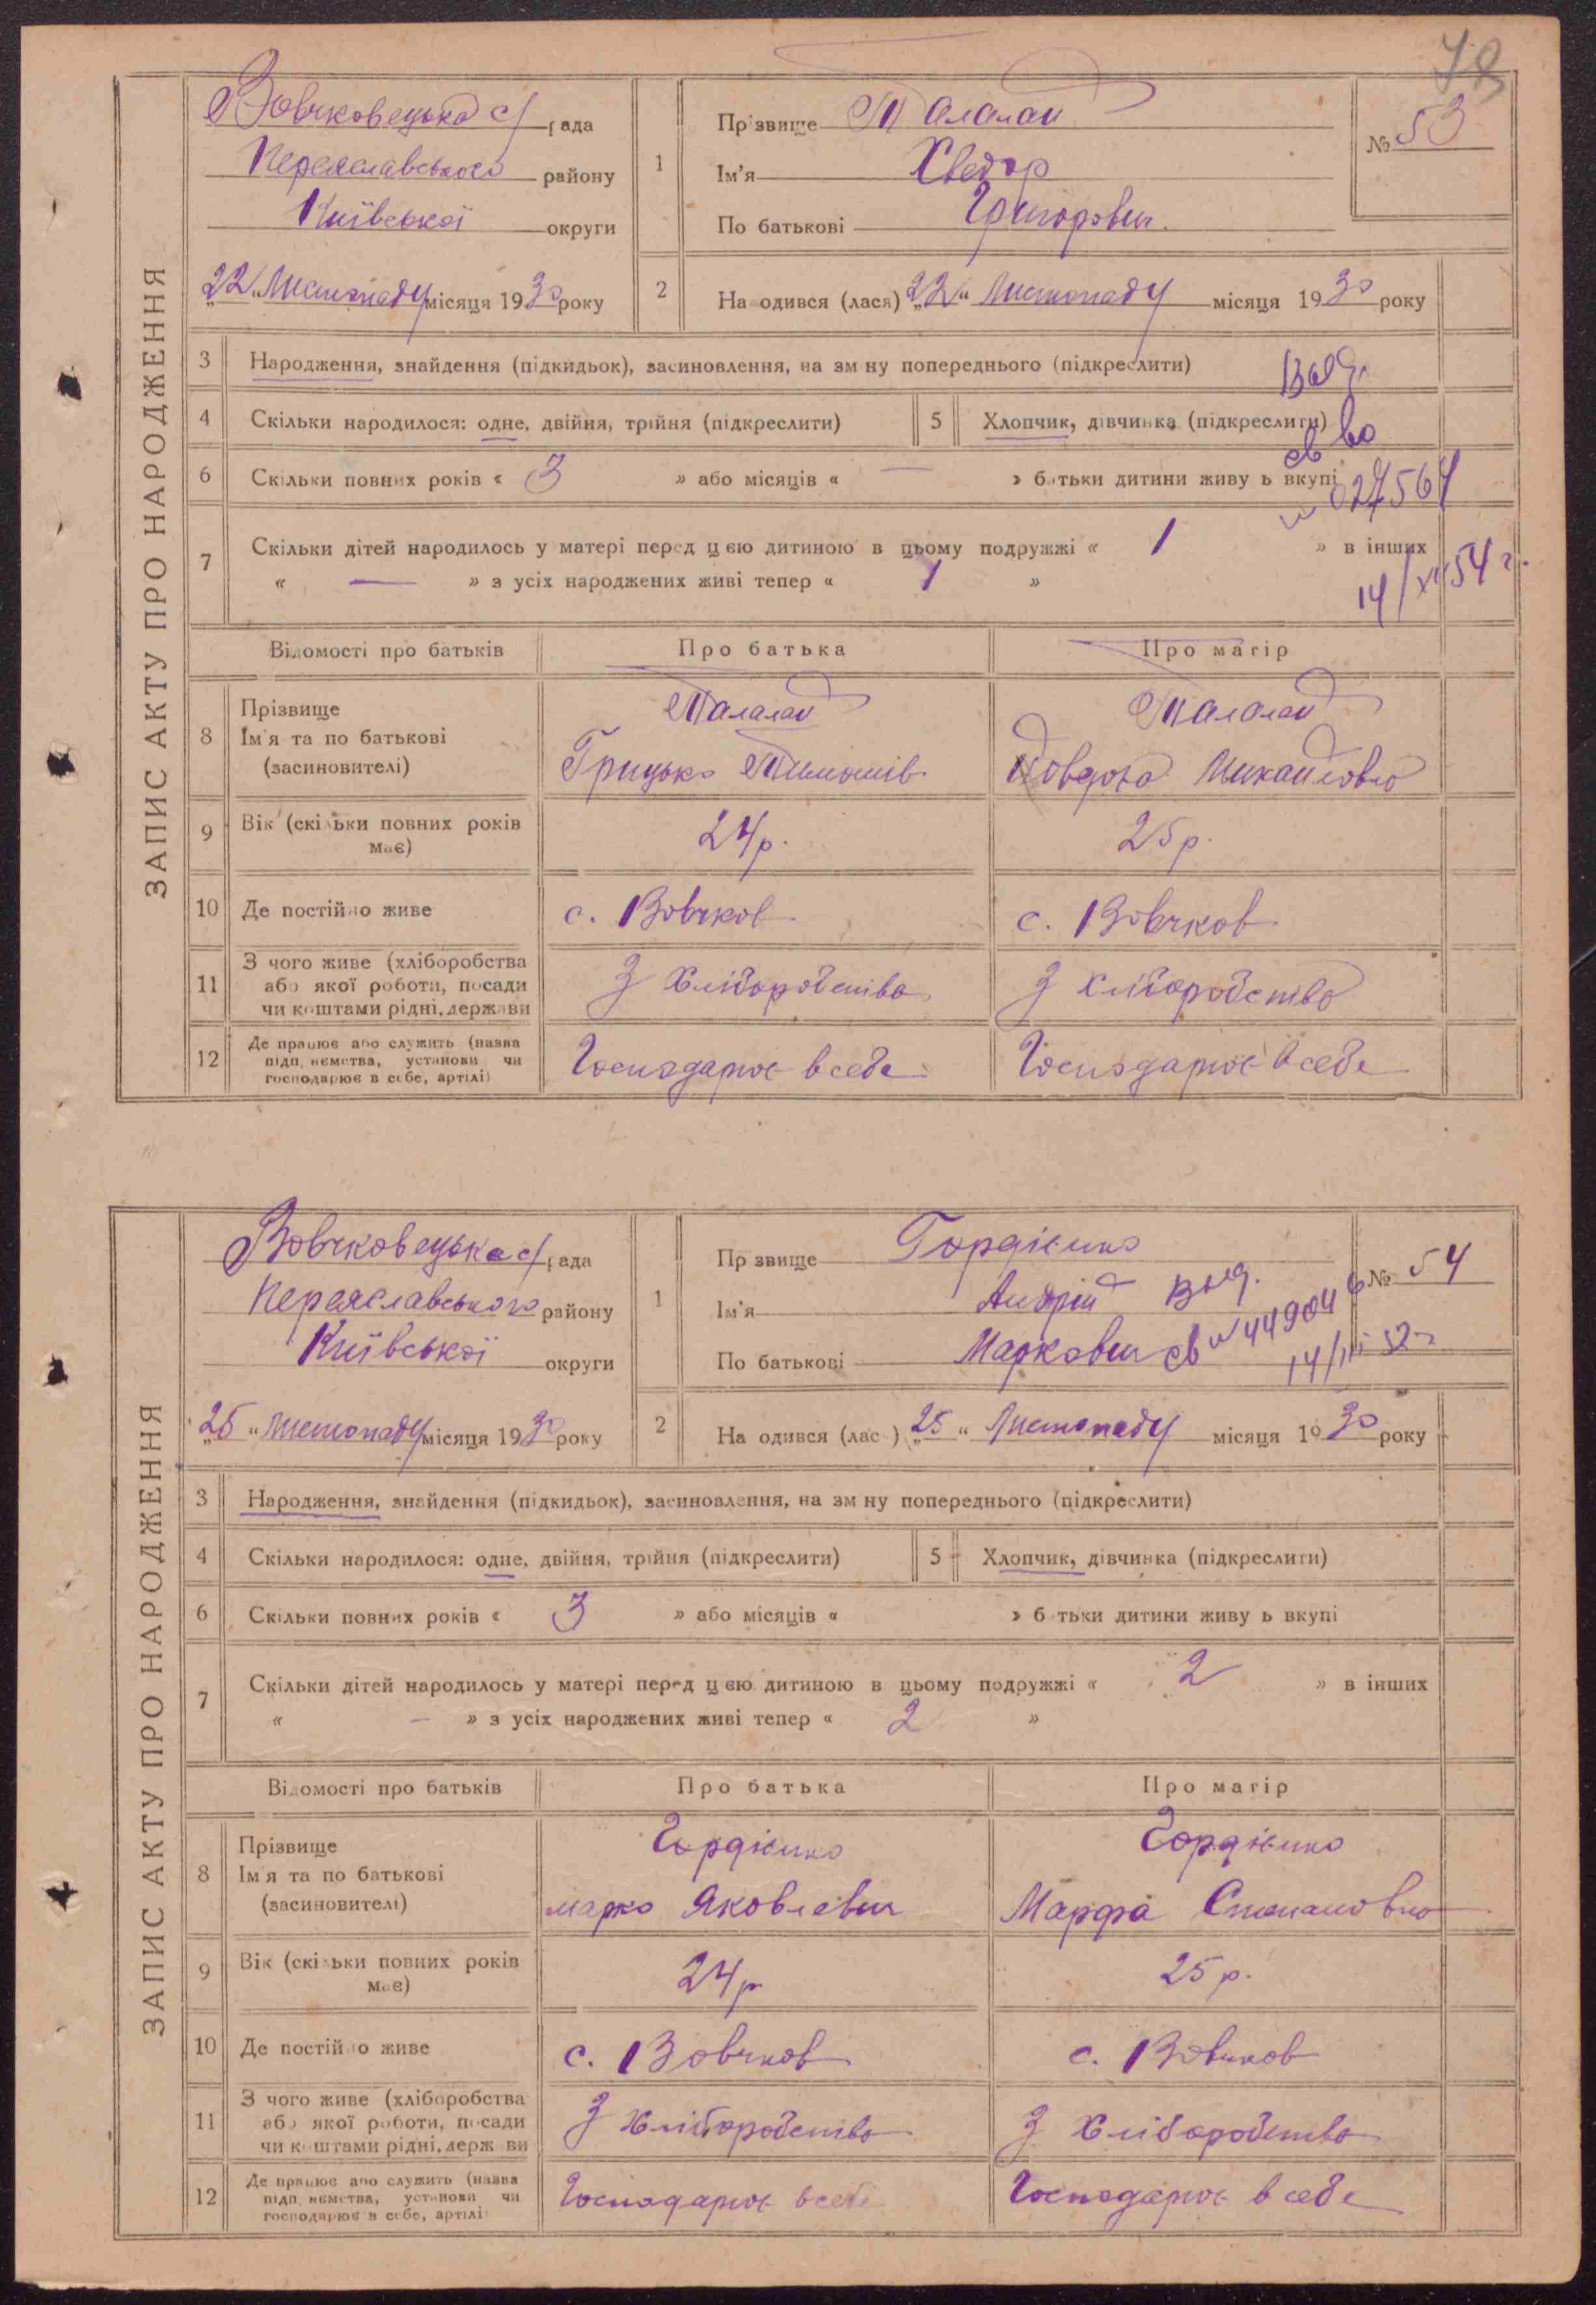 78
ЗАПИС АКТУ ПРО НАРОДЖЕННЯ
Вовчковецька с/рада
Переяславського району
Київської округи
„22“ Листопаду місяця 1930 року
1
Прізвище Талалай
Ім'я Хведор
По батькові Григорович
№ 53
2
На одився (лася) „22“ Листопаду місяця 1930 року
3 Народження, знайдення (підкидьок), засиновлення, на зм ну попереднього (підкреслити)
Выд.
4 Скільки народилося: одне, двійня, трійня (підкреслити)
5 Хлопчик, дівчинка (підкреслити)
св во
6 Скільки повних років « 3 » або місяців « — » батьки дитини живу ь вкупі
027567
7 Скільки дітей народилось у матері перед цею дитиною в цьому подружжі « 1 » в інших
« — » з усіх народжених живі тепер « 1 »
14/XII 54 г.
Відомості про батьків Про батька Про матір
8 Прізвище Талалай Талалай
Ім'я та по батькові Грицько Тимошів Довдоха Михайловна
(засиновителі)
9 Вік (скільки повних років має) 24 р. 25 р.
10 Де постійно живе с. Вовчков с. Вовчков
11 З чого живе (хліборобства або якої роботи, посади чи коштами рідні, держави З хліборобства З хліборобства
12 Де працює або служить (назва підп немства, установи чи господарює в себе, артілі) Господарює в себе Господарює в себе
ЗАПИС АКТУ ПРО НАРОДЖЕННЯ
Вовчковецька с/рада
Переяславського району
Київської округи
„25“ Листопаду місяця 1930 року
1
Пр звище Гордієнко
Ім'я Андрій Выд.
По батькові Маркович св № 449046
14/III 52 г
№ 54
2
На одився (лас ) „25“ Листопаду місяця 1930 року
3 Народження, знайдення (підкидьок), засиновлення, на зм ну попереднього (підкреслити)
4 Скільки народилося: одне, двійня, трійня (підкреслити)
5 Хлопчик, дівчинка (підкреслити)
6 Скільки повних років « 3 » або місяців « » б тьки дитини живу ь вкупі
7 Скільки дітей народилось у матері перед цею дитиною в цьому подружжі « 2 » в інших
« — » з усіх народжених живі тепер « 2 »
Відомості про батьків Про батька Про матір
8 Прізвище Гордієнко Гордієнко
Ім'я та по батькові Марко Яковлевич Марфа Степановна
(засиновителі)
9 Вік (скільки повних років має) 24 р 25 р.
10 Де постійно живе с. Вовчков с. Вовчков
11 З чого живе (хліборобства або якої роботи, посади чи коштами рідні, держ ви З хліборобства З хліборобства
12 Де працює або служить (назва підп немства, установи чи господарює в себе, артілі Господарює в себе Господарює в себе